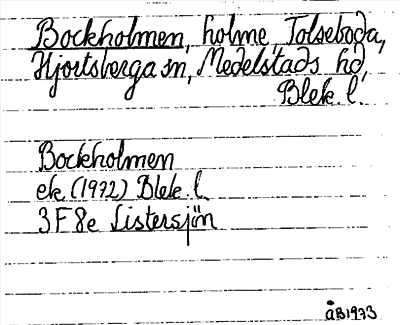 Bockholmen, holme, Tolseboda,
Hjortsberga sn, Medelstads hd,
Blek. l.
Bockholmen
ek. (1972) Blek. l.
3F 8e Listersjön
ÅB 1973